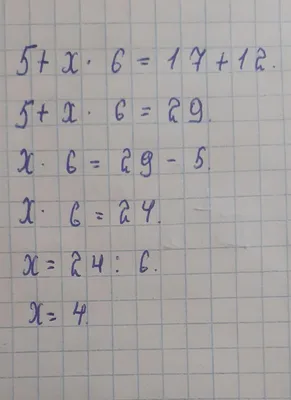 5 + x · 6 = 17 + 12.
5 + x · 6 = 29.
x · 6 = 29 - 5.
x · 6 = 24.
x = 24 : 6.
x = 4.